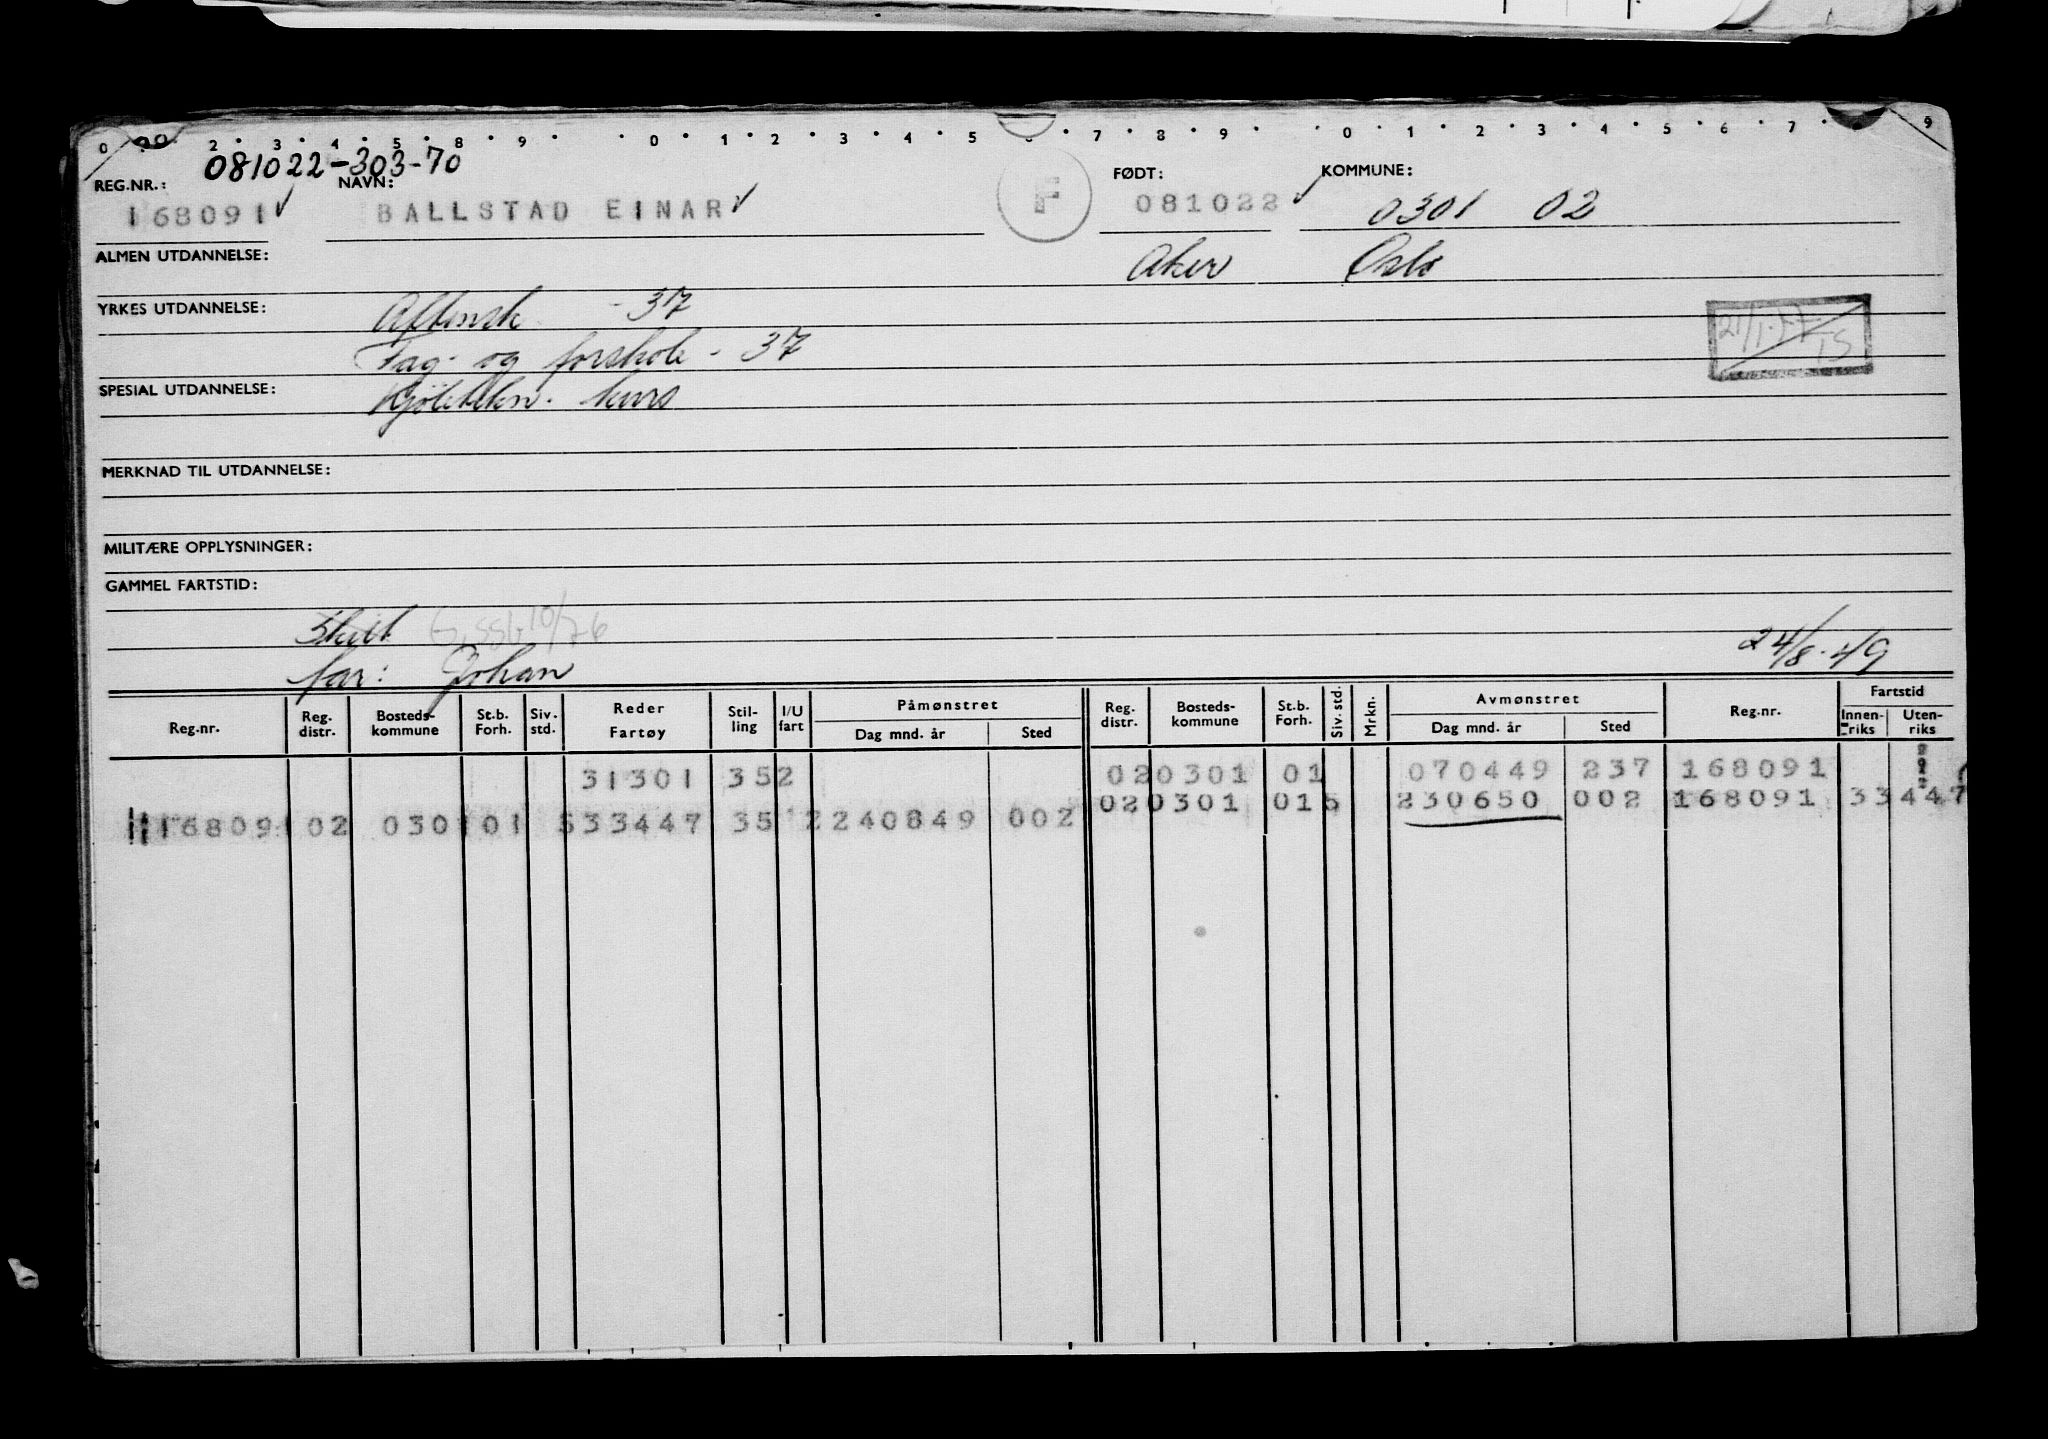 0 2 • 3 • 4 • 5 • 8 • 9 • • 0 • 1 • 2 • 3 • 4 • 5 • 7 • 8 • 9 • • 0 • 1 • 2 • 3 • 4 • 5 • 6 • 7 • 9
081022-303-70
REG.NR.: NAVN: FØDT: KOMMUNE:
168091 ✓ BALLSTAD EINAR ✓ F 081022 ✓ 0301 02
ALMEN UTDANNELSE: Aker Oslo
YRKES UTDANNELSE: Aftensk. - 37
Fag- og forskole - 37
SPESIAL UTDANNELSE: Kjølekn. kurs
MERKNAD TIL UTDANNELSE:
MILITÆRE OPPLYSNINGER:
GAMMEL FARTSTID:
10/76
24/8-49
far: Johan
Reg.nr. Reg. distr. Bosteds-kommune St.b. Forh. Siv. std. Reder Fartøy Stil-ling I/U fart Påmønstret Dag mnd. år Sted Reg. distr. Bosteds-kommune St.b. Forh. Siv. std. Mrkn. Avmønstret Dag mnd. år Sted Reg.nr. Fartstid Innen-riks Uten-riks
31301 352 02 0301 01 070449 237 168091
02 0301 01 5 230650 002 168091 33447
168091 02 0301 01 533447 351 2 240849 002